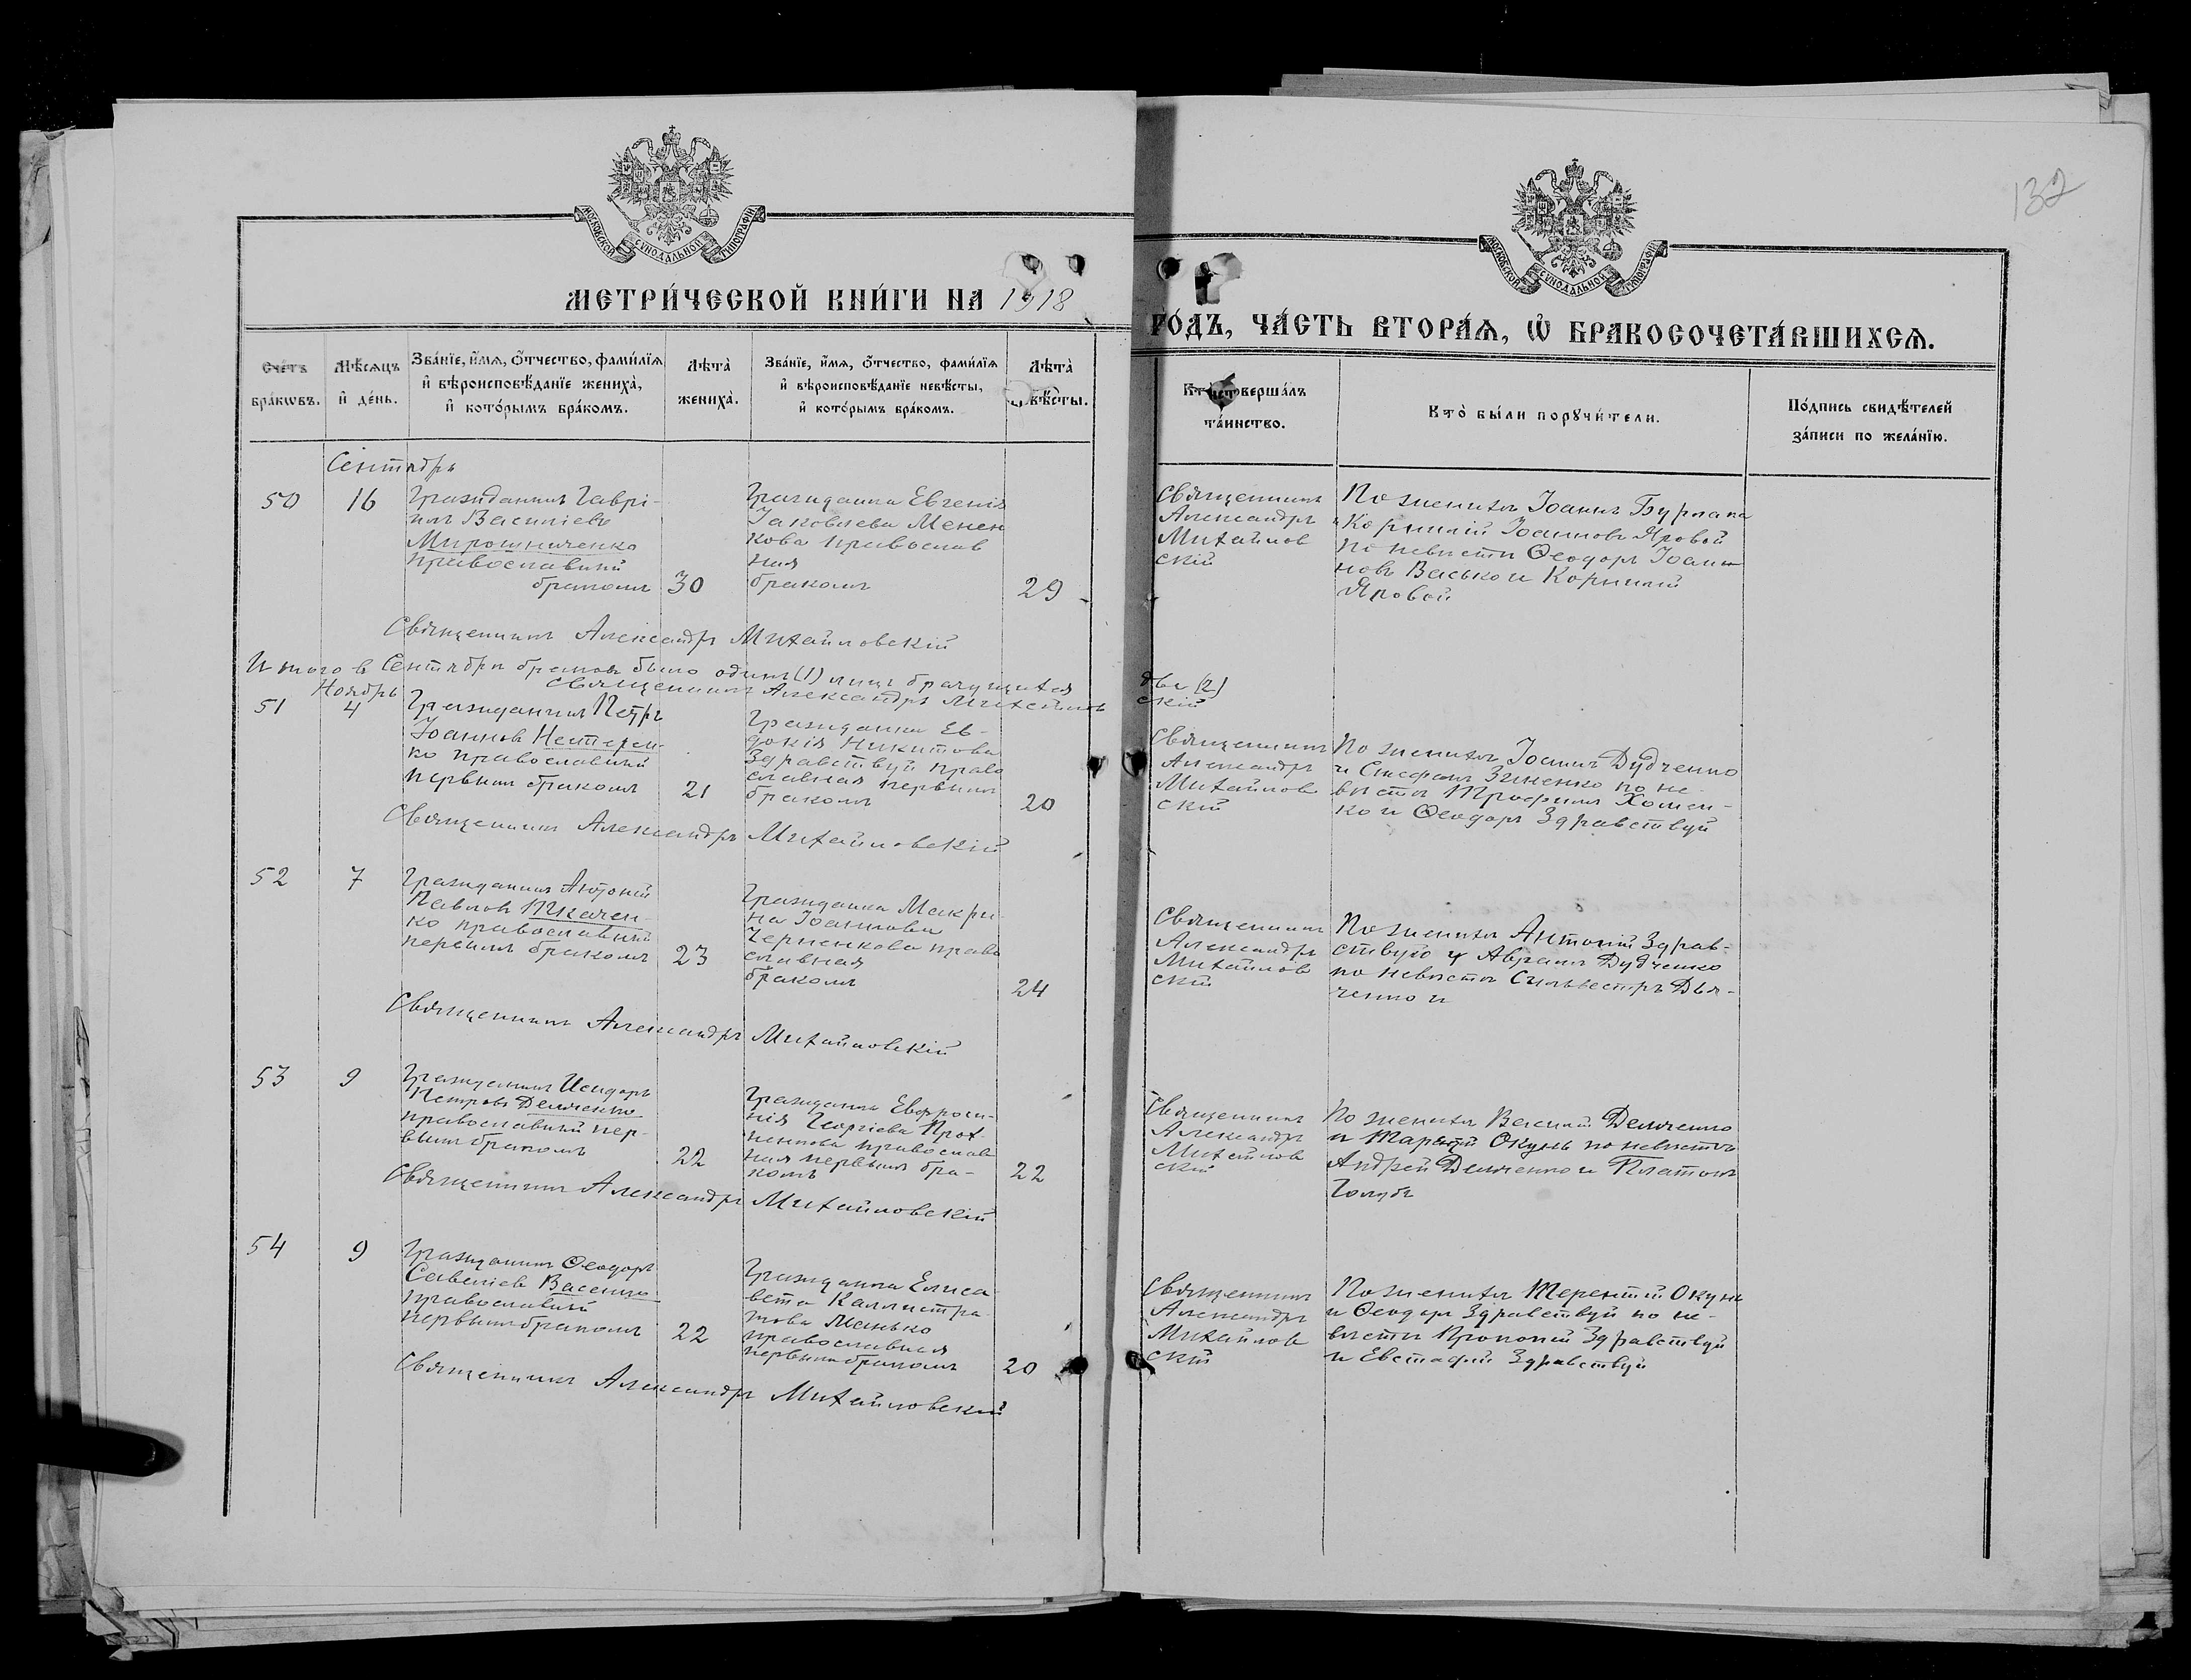 132
МОСКОВСКОЙ СѴНОДАЛЬНОЙ ТИПОГРАФІИ
МОСКОВСКОЙ СѴНОДАЛЬНОЙ ТИПОГРАФІИ
МЕТРИ́ЧЕСКОЙ КНИ́ГИ НА 1918
ГО́ДЪ, ЧА́СТЬ ВТОРА́Ѧ, Ѡ҆ БРАКОСОЧЕТА́ВШИХСѦ.
Сче́тъ
бра́кѡвъ.
Мѣ́сѧцъ
и҆ де́нь.
Зва́нїе, и҆́мѧ, ѻ҆́тчество, фами́лїѧ
и҆ вѣроисповѣ́данїе жениха̀,
и҆ кото́рымъ бра́комъ.
Лѣта̀
жениха̀.
Зва́нїе, и҆́мѧ, ѻ҆́тчество, фами́лїѧ
и҆ вѣроисповѣ́данїе невѣ́сты,
и҆ кото́рымъ бра́комъ.
Лѣта̀
невѣ́сты.
Кто̀ соверша́лъ
та́инство.
Кто̀ бы́ли порꙋчи́тели.
По́дпись свидѣ́телей
за́писи по жела́нїю.
Сентябрь
50
16
Гражданинъ Гаврі-
илъ Василіевъ
Мирошниченко
православный
бракомъ
30
Гражданка Евгенія
Іаковлева Менен
кова православ
ная
бракомъ
29
Священникъ
Александръ
Михайлов
скій
По женихѣ Іоаннъ Бурлака
Корнилій Іоанновъ Яровой
по невѣстѣ Ѳеодоръ Іоан
новъ Васько и Корнилій
Яровой
Священникъ Александръ Михайловскій
Итого в Сентябрѣ браковъ было одинъ (1) лицъ брачущихся
двѣ (2)
Священникъ Александръ Михайлов
скій
Ноябрь
51
4
Гражданинъ Петръ
Іоанновъ Нестерен-
ко православный
первымъ бракомъ
21
Гражданка Ев-
докія Никитова
Здравствуй право
славная первымъ
бракомъ
20
Священникъ
Александръ
Михайлов
скій
По женихѣ Іоаннъ Дудченко
и Стефанъ Зиненко по не-
вѣстѣ Трофимъ Хомен-
ко и Ѳеодоръ Здравствуй
Священникъ Александръ Михайловскій
52
7
Гражданинъ Антоній
Павловъ Ткачен-
ко православный
первымъ бракомъ
23
Гражданка Макри-
на Іоаннова
Черненкова право
славная
бракомъ
24
Священникъ
Александръ
Михайлов
скій
По женихѣ Антоній Здрав-
ствуй и Авраамъ Дудченко
по невѣстѣ Сильвестръ Дья-
ченко и
Священникъ Александръ Михайловскій
53
9
Гражданинъ Исидоръ
Петровъ Демченко
православный пер-
вымъ бракомъ
22
Гражданка Евфроси-
нія Георгіева Прох-
ненкова православ
ная первымъ бра-
комъ
22
Священникъ
Александръ
Михайлов
скій
По женихѣ Василій Демченко
и Окунь по невѣстѣ
Андрей Демченко и Платонъ
Голубъ
Священникъ Александръ Михайловскій
54
9
Гражданинъ Ѳеодоръ
Савеліев Васенко
православный
первымъ бракомъ
22
Гражданка Елиса
вета Каллистра-
това Менько
православная
первымъ бракомъ
20
Священникъ
Александръ
Михайлов
скій
По женихѣ Терентій Окунь
и Ѳеодоръ Здравствуй по не-
вѣстѣ Прокопій Здравствуй
и Евстафій Здравствуй
Священникъ Александръ Михайловскій